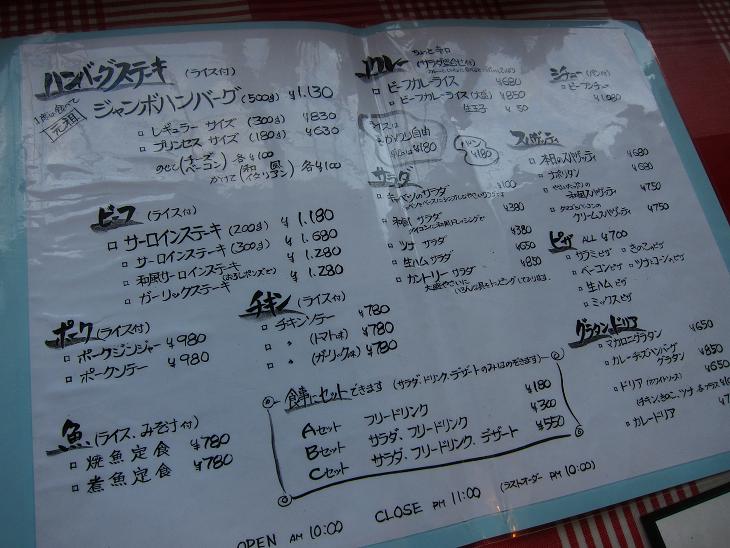 ハンバーグステーキ (ライス付)
元祖
ジャンボハンバーグ (500g) ¥1,130
□ レギュラー サイズ (300g) ¥830
□ プリンセス サイズ (180g) ¥630
のせて (チーズ ベーコン) 各¥100
かけて (和風 イタリアン) 各¥100
ビーフ (ライス付)
□ サーロインステーキ (200g) ¥1,180
□ サーロインステーキ (300g) ¥1,680
□ 和風サーロインステーキ (おろしポンズで) ¥1,280
□ ガーリックステーキ ¥1,280
ポーク (ライス付)
□ ポークジンジャー ¥980
□ ポークソテー ¥980
チキン (ライス付)
□ チキンソテー ¥780
□ 〃 (トマト味) ¥780
□ 〃 (ガーリック味) ¥780
魚 (ライス、みそ汁付)
□ 焼魚定食 ¥780
□ 煮魚定食 ¥780
カレー ちょっと辛口
□ ビーフカレーライス ¥680
□ ビーフカレーライス (大盛) ¥850
生玉子 ¥50
ライスは
おかわり自由
¥180
パン
¥180
サラダ
□ キャベツのサラダ ¥100
□ 和風サラダ ¥380
□ ツナ サラダ ¥380
□ 生ハム サラダ ¥650
□ カントリー サラダ ¥850
シチュー (パン付)
□ ビーフシチュー ¥1,080
スパゲッティ
□ 和風スパゲッティ ¥680
□ ナポリタン ¥680
和風スパゲッティ ¥750
クリームスパゲッティ ¥750
ピザ ALL ¥700
□ サラミピザ □ きのこピザ
□ ベーコンピザ □ ツナ・コーンピザ
□ 生ハムピザ
□ ミックスピザ
グラタン・ドリア
□ マカロニグラタン ¥650
□ カレーチーズハンバーグ グラタン ¥850
□ ドリア (ホワイトソース) ¥650
(チキン、きのこ、ツナ 各プラス
□ カレードリア
食事にセットできます (サラダ、ドリンク、デザートのみはのぞきます)
Aセット フリードリンク ¥180
Bセット サラダ、フリードリンク ¥300
Cセット サラダ、フリードリンク、デザート ¥550
OPEN AM 10:00 CLOSE PM 11:00 (ラストオーダー PM 10:00)